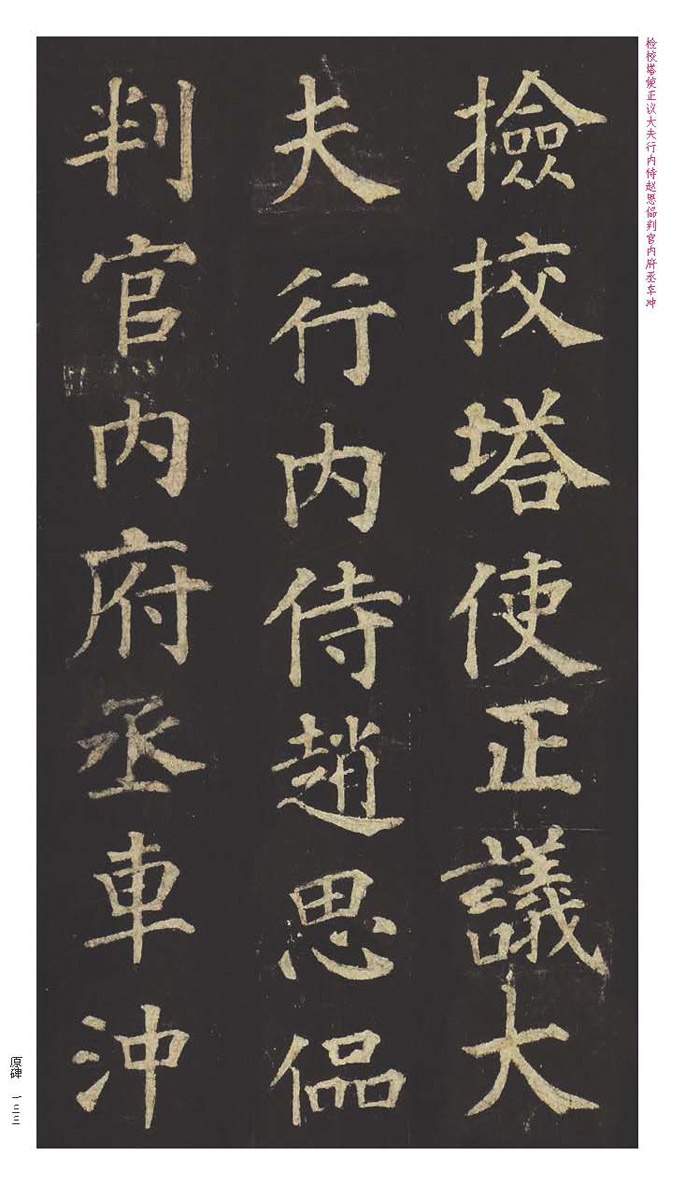 检校塔使正议大夫行内侍赵思偘判官内府丞车冲
撿挍塔使正議大
夫行内侍趙思偘
判官内府丞車沖
原碑 一三三